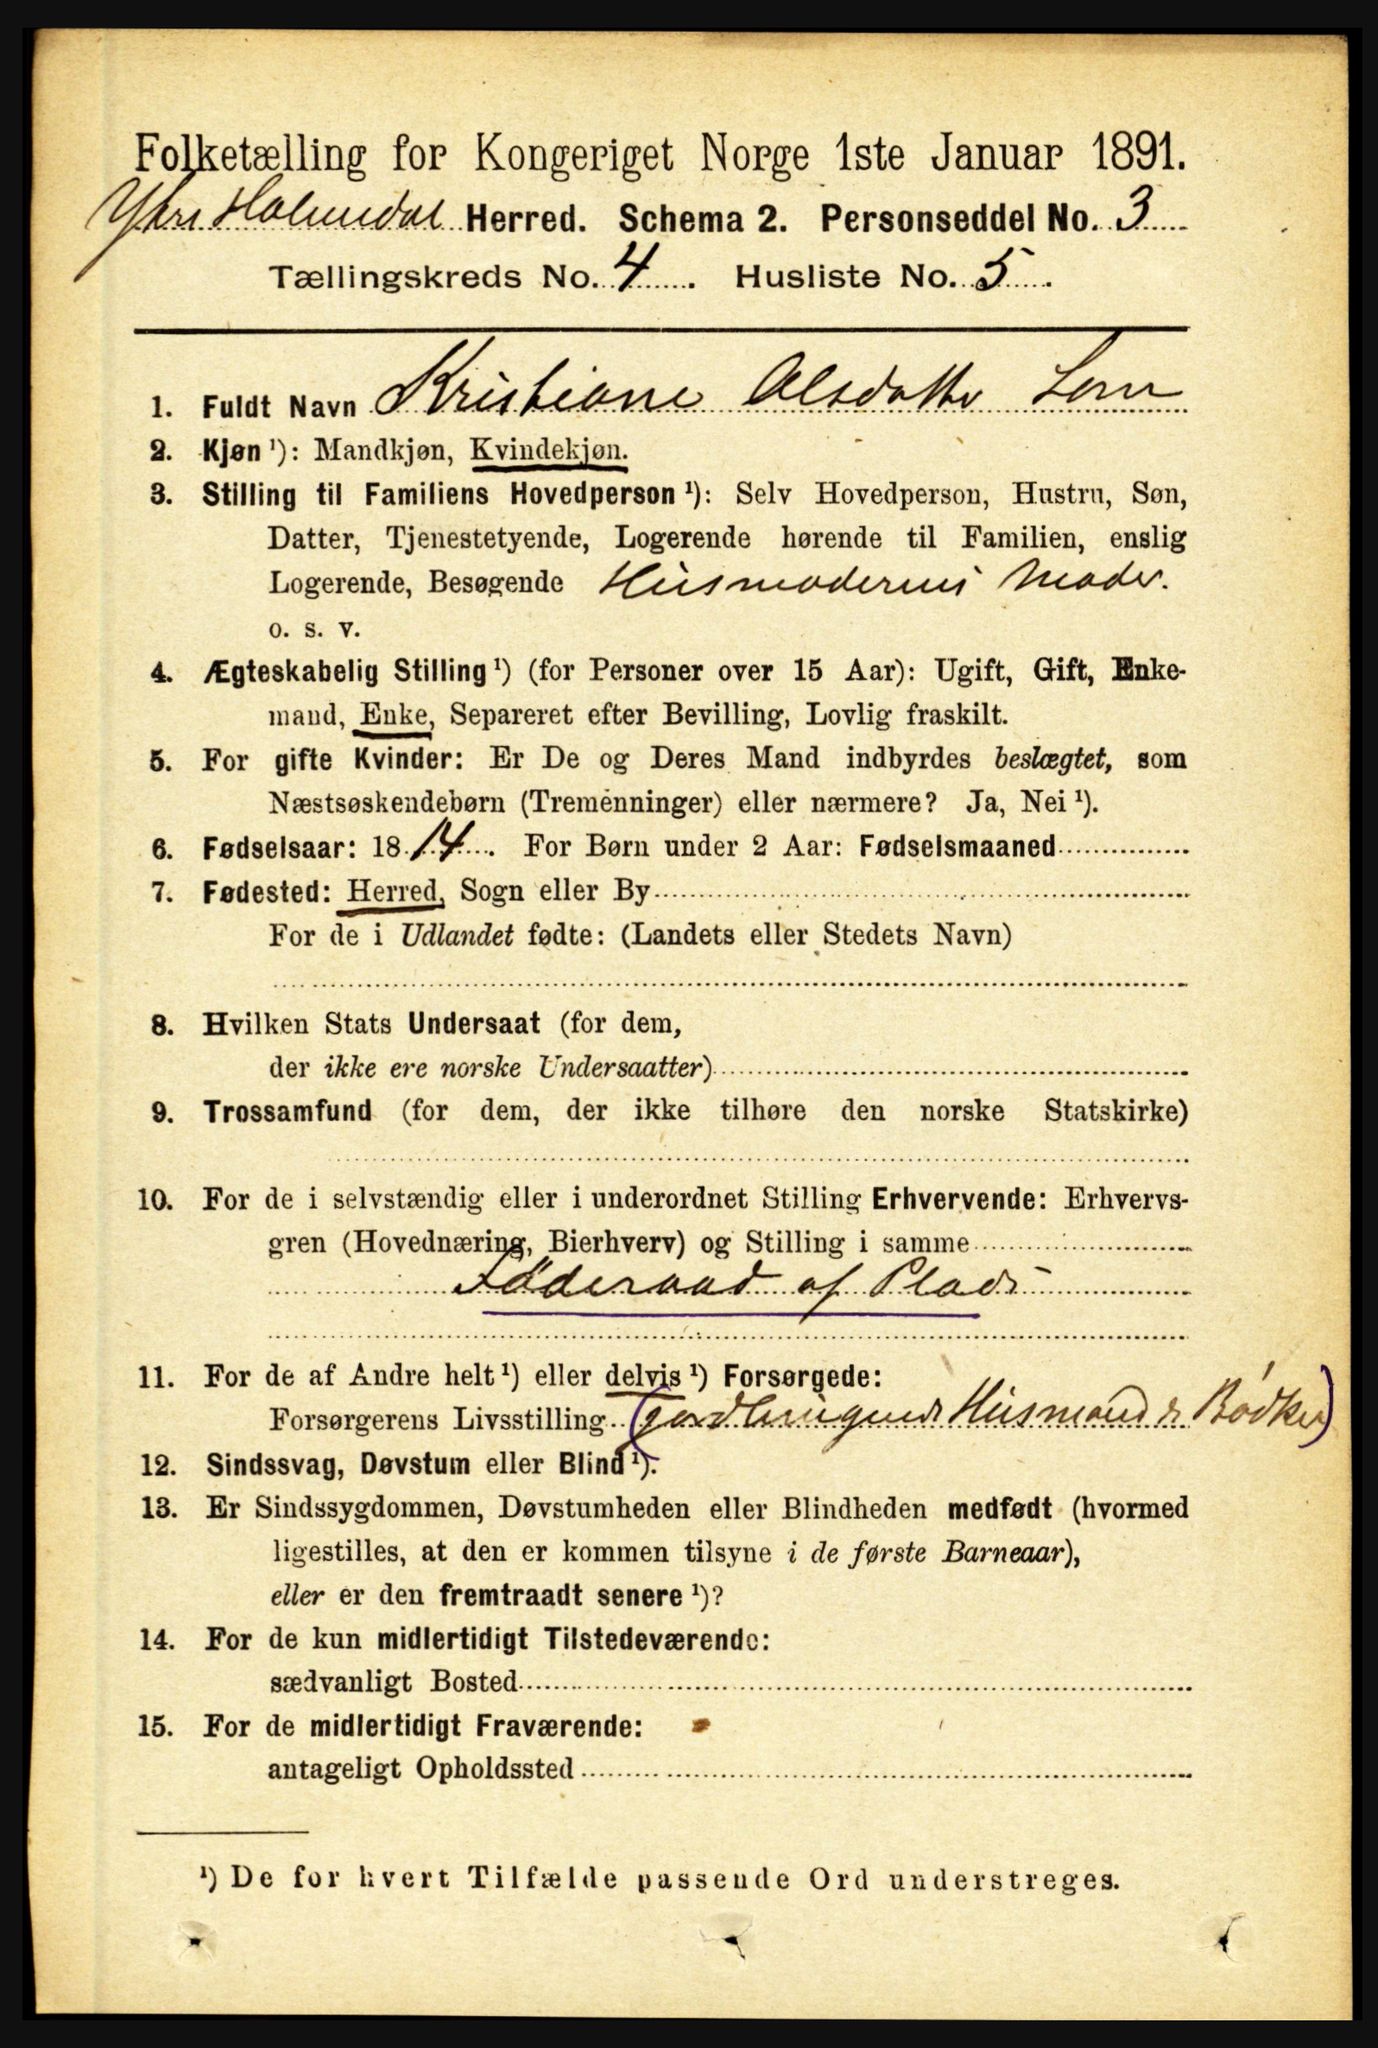 Folketælling for Kongeriget Norge 1ste Januar 1891.
Ytre Holmedal Herred. Schema 2. Personseddel No. 3
Tællingskreds No. 4. Husliste No. 5.
1. Fuldt Navn Kristiane Olsdatter
2. Kjøn ¹): Mandkjøn, Kvindekjøn.
3. Stilling til Familiens Hovedperson ¹): Selv Hovedperson, Hustru, Søn,
Datter, Tjenestetyende, Logerende hørende til Familien, enslig
Logerende, Besøgende Husmoderens Moder.
o. s. v.
4. Ægteskabelig Stilling ¹) (for Personer over 15 Aar): Ugift, Gift, Enke-
mand, Enke, Separeret efter Bevilling, Lovlig fraskilt.
5. For gifte Kvinder: Er De og Deres Mand indbyrdes beslægtet, som
Næstsøskendebørn (Tremenninger) eller nærmere? Ja, Nei ¹).
6. Fødselsaar: 1814. For Børn under 2 Aar: Fødselsmaaned
7. Fødested: Herred, Sogn eller By
For de i Udlandet fødte: (Landets eller Stedets Navn)
8. Hvilken Stats Undersaat (for dem,
der ikke ere norske Undersaatter)
9. Trossamfund (for dem, der ikke tilhøre den norske Statskirke)
10. For de i selvstændig eller i underordnet Stilling Erhvervende: Erhvervs-
gren (Hovednæring, Bierhverv) og Stilling i samme
Føderaad af Plads
11. For de af Andre helt ¹) eller delvis ¹) Forsørgede:
Forsørgerens Livsstilling (jordbrugende Husmand & Bødker)
12. Sindssvag, Døvstum eller Blind ¹).
13. Er Sindssygdommen, Døvstumheden eller Blindheden medfødt (hvormed
ligestilles, at den er kommen tilsyne i de første Barneaar),
eller er den fremtraadt senere ¹)?
14. For de kun midlertidigt Tilstedeværende:
sædvanligt Bosted
15. For de midlertidigt Fraværende:
antageligt Opholdssted
¹) De for hvert Tilfælde passende Ord understreges.